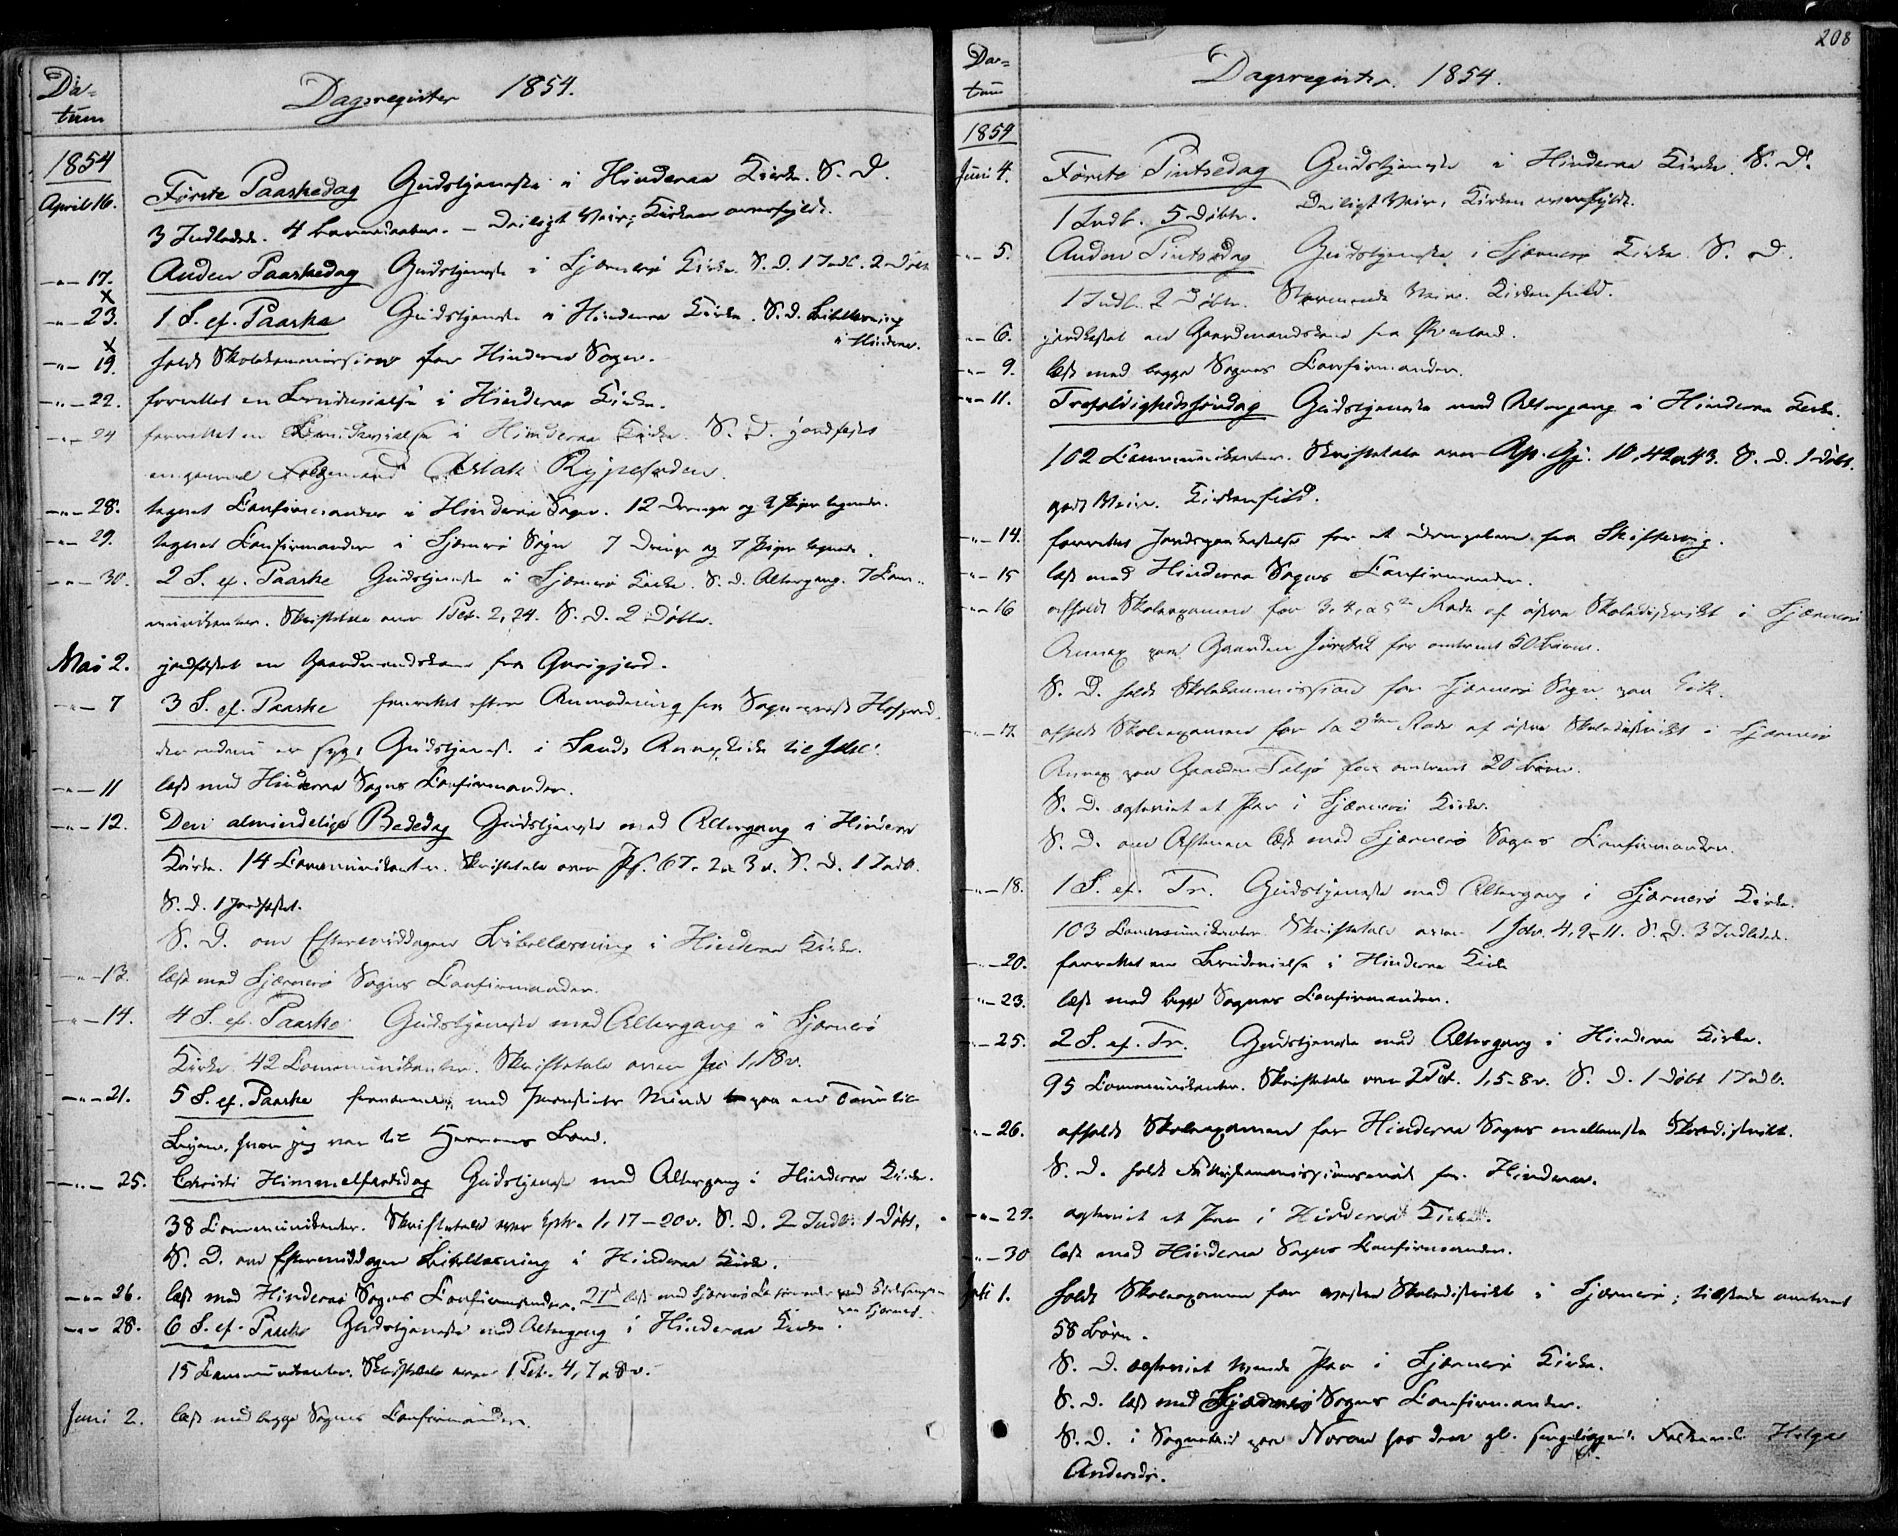 Da=
tum
Dagsregister 1854.
1854
April 16. Förste Paaskedag Gudstjeneste i Hinderaa Kirke. S. D.
3 Indledede. 4 Barnedaaber. – Deiligt Veir; Kirken overfyldt.
–"– 17. Anden Paaskedag Gudstjeneste i Sjærnerö Kirke. S. D. 1 Indl. 2 Döbte
x
–"– 23. 1 S. ef. Paaske Gudstjeneste i Hinderaa Kirke. S. D. Bibellæsning
i Hinderaa.
x
–"– 19. holdt Skolekommission for Hinderaa Sogn.
–"– 22. forrettet en Brudevielse i Hinderaa Kirke.
–"– 24 forrettet en Brudevielse i Hinderaa Kirke. S. D. jordfæstet
en gammel Aslak Rypeforden.
–"– 28. tegnet Confirmander i Hinderaa Sogn. 12 Drenge og 9 Piger tegnede.
–"– 29. tegnet Confirmander i Sjærnerö Sogn 7 Drenge og 7 Piger tegnede.
–"– 30. 2 S. ef. Paaske Gudstjeneste i Sjærnerö Kirke. S. D. Altergang. 7 Com-
munikanter. Skriftetale over 1 Pet. 2, 24. S. D. 2 Döbte.
Mai 2. jordfæstet en Gaardmandskone fra
–"– 7 3 S. ef. Paaske forrettet efter Anmodning fra Sognepræst
der endnu er syg, Gudstjeneste i Sands Annexkirke til
–"– 11 læst med Hinderaa Sogns Confirmander.
–"– 12. Den almindelige Bededag Gudstjeneste med Altergang i Hinderaa
Kirke. 14 Communikanter. Skriftetale over Ps. 67. 2 a 3 v. S. D. 1 Indl.
S. D. 1 Jordfæstet.
S. D. om Eftermiddagen Bibellæsning i Hinderaa Kirke.
–"– 13. læst med Sjærnerö Sogns Confirmander.
–"– 14. 4 S. ef. Paaske Gudstjeneste med Altergang i Sjærnerö
Kirke. 42 Communikanter. Skriftetale over 1, 18 v.
–"– 21. 5 S. ef. Paaske med Minde paa en Tour til
Byen, hvor jeg var til
–"– 25. Christi Himmelfartsdag Gudstjeneste med Altergang i Hinderaa Kirke.
38 Communikanter. Skriftetale over Eph. 1, 17–20 v. S. D. 2 Indl. 1 Döbt.
S. D. om Eftermiddagen Bibellæsning i Hinderaa Kirke.
–"– 26. læst med Hinderaa Sogns Confirmander. læst med Sjærnerö
–"– 28. 6 S. ef. Paaske Gudstjeneste med Altergang i Hinderaa Kirke.
15 Communikanter. Skriftetale over 1 Pet. 4, 7 a 8 v.
Juni 2. læst med begge Sognes Confirmander.
208
Da=
tum
Dagsregister. 1854.
1854
Juni 4. Förste Pintsedag Gudstjeneste i Hinderaa Kirke. S. D.
1 Indl. 5 Döbte. Deiligt Veir, Kirken overfyldt.
–"– 5. Anden Pintsedag Gudstjeneste i Sjærnerö Kirke S. D.
1 Indl. 2 Döbte. Stormende Veir. Kirken fuld.
–"– 6. jordfæstet en Gaardmandskone fra
–"– 9. læst med begge Sognes Confirmander.
–"– 11. Trefoldighedssöndag Gudstjeneste med Altergang i Hinderaa Kirke.
102 Communikanter. Skriftetale over Ap. Gj. 10, 42 a 43. S. D. 1 Döbt.
godt Veir. Kirken fuld.
–"– 14. forrettet Jordspaakastelse for et Drengebarn fra Skiftesvig.
–"– 15 læst med Hinderaa Sogns Confirmander.
–"– 16 afholdt Skoleexamen for 3, 4, a 5te Rode af östre Skoledistrikt i Sjærnerö
Annex paa Gaarden for omtrent 50 börn.
S. D. holdt Skolekommission for Sjærnerö Sogn paa Eik.
–"– 17. afholdt Skoleexamen for 1 a 2den Rode af östre Skoledistrikt i Sjærnerö
Annex paa Gaarden Talgö for omtrent 20 börn.
S. D. ægteviet et Par i Sjærnerö Kirke.
S. D. om Aftenen læst med Sjærnerö Sogns Confirmander.
–"– 18. 1 S. ef. Tr. Gudstjeneste med Altergang i Sjærnerö Kirke.
103 Communikanter. Skriftetale over 1 Joh. 4, 9–11. S. D. 3 Indledede.
–"– 20. forrettet en Brudevielse i Hinderaa Kirke
–"– 23. læst med begge Sognes Confirmander.
–"– 25. 2 S. ef. Tr. Gudstjeneste med Altergang i Hinderaa Kirke.
95 Communikanter. Skriftetale over 2 Pet. 1, 5–8 v. S. D. 1 Döbt 1 Indl.
–"– 26. afholdt Skoleexamen for Hinderaa Sogns mellemste Skoledistrikt.
S. D. holdt for Hinderaa.
–"– 29. ægteviet et Par i Hinderaa Kirke.
–"– 30 læst med Hinderaa Sogns Confirmander.
Juli 1. holdt Skoleexamen for vestre Skoledistrikt i Sjærnerö; tilstede omtrent
58 Börn.
S. D. ægteviet tvende Par i Sjærnerö Kirke.
S. D. læst med Sjærnerö Sogns Confirmander.
S. D. i Sognebud paa hos den gl. sengeliggende Helge
Andersdr.